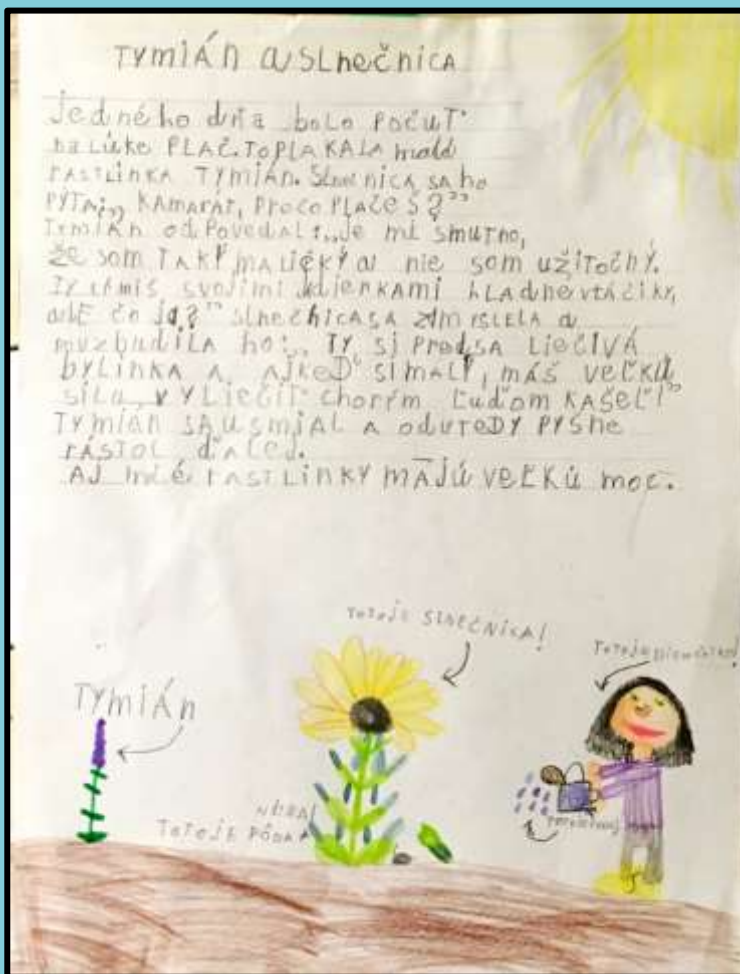 TYMIÁN a SLNEČNICA
Jedného dňa bolo POČUŤ
na LÚKe PLAČ. TO PLAKALA malá
RASTLINKA TYMIÁN. SLNečNICA SA ho
PÝTA: „KAMARÁT, PREČO PLAČEŠ?"
TYMIÁN odPovedAL: „Je mi smutno,
že som TAKÝ MALIČKÝ a nie som užitočný.
TY kŕmiš svojimi semienkami hladné vtáčiky,
ALE čo ja?" SLNEČNICA SA zamyslela a
povzbudila ho: „TY si predsa LIEČIVÁ
BYLINKA a AJ KEĎ SI MALÝ, máš VEĽKÚ
SILU VYLIEČIŤ CHORÝM ĽUĎOM KAŠEĽ!"
TYMIÁN SA USMIAL A ODVTEDY PYŠNE
RÁSTOL ĎALEJ.
AJ malé RASTLINKY MAJÚ VEĽKÚ moc.
TOTO JE SLNEČNICA!
TYMIÁN
TOTO JE PÔDA